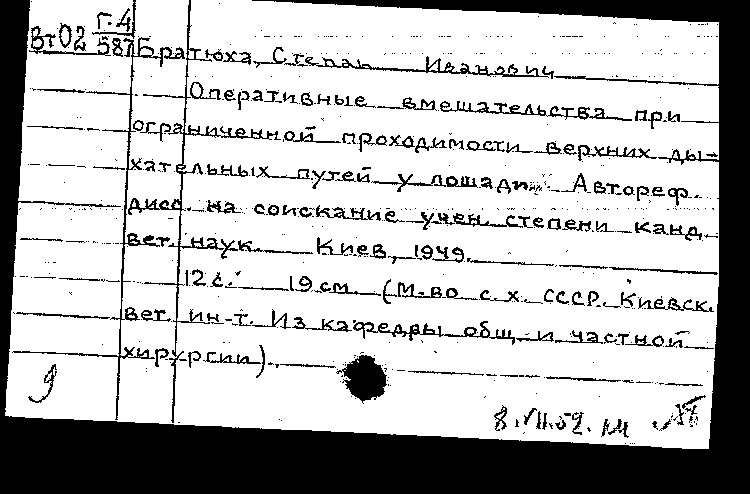 Г.4
Вт02 587 Братюха, Степан Иванович
Оперативные вмешательства при
ограниченной проходимости верхних ды-
хательных путей у лошади. Автореф.
дисс. на соискание учен. степени канд.
вет. наук. Киев, 1949.
12 с. 19 см. (М-во с.х. СССР. Киевск.
вет. ин-т. Из кафедры общ. и частной
хирургии).
9
8.VII.52.